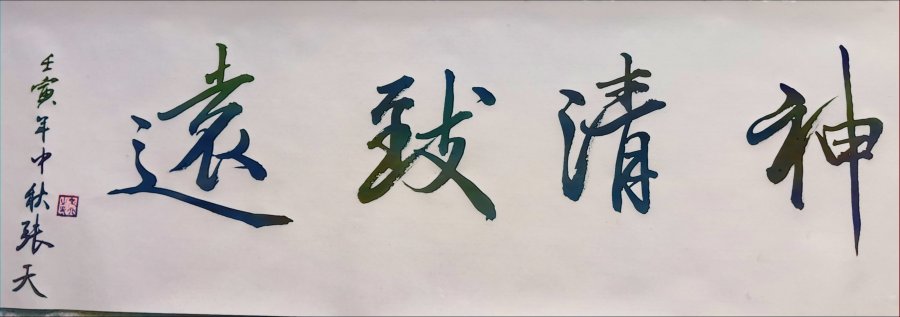 神清致遠
壬寅年中秋張天